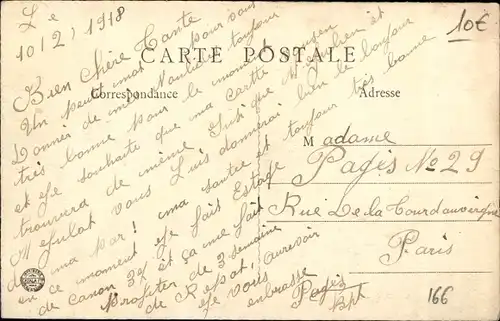 Le
10(2) 1918
10€
Bien Chère Tante
CARTE POSTALE
Correspondance
Adresse
Un petit mot pour vous
Donner de mes Nouvelles toujour
très bonne pour le moment
et Je souhaite que ma Cartte
trouvera de même
vous Lui donnerai bien le bonjour
de ma par! ma santée et toujour très bonne
en ce moment Je fait Estage
de Canon 37 et ça me fait
Profiter de 3 semaine
de Repot! aurevoir
Je vous embrasse
Pagès
Madame
Pagès No 29
Rue De la Tourdauvergne
Paris
166